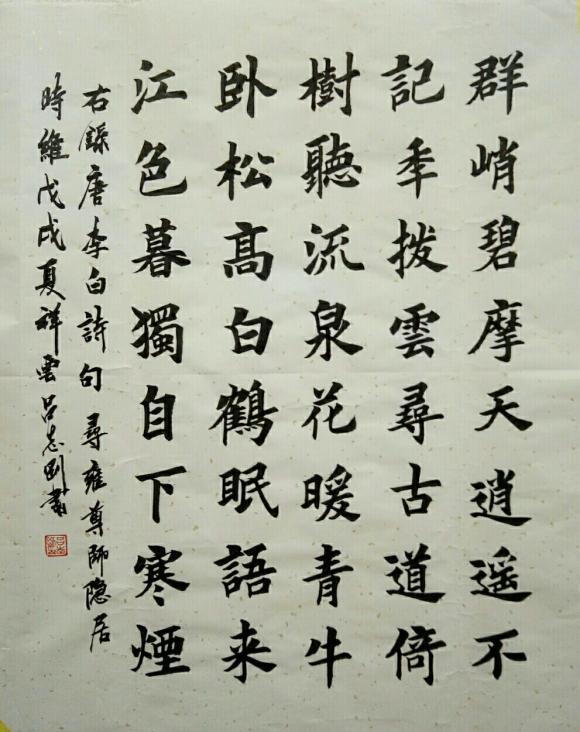 群峭碧摩天逍遥不
記秊拨雲尋古道倚
樹聽流泉花暖青牛
卧松髙白鶴眠語来
江色暮獨自下寒煙
右錄唐李白詩句尋雍尊師隐居
時維戊戌夏祥雲呂志剛書